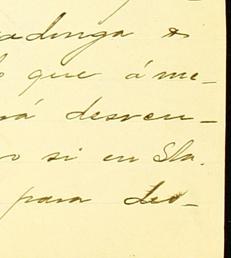 adinga &
que áme-
rá desven-
o si en Sla.
para des-